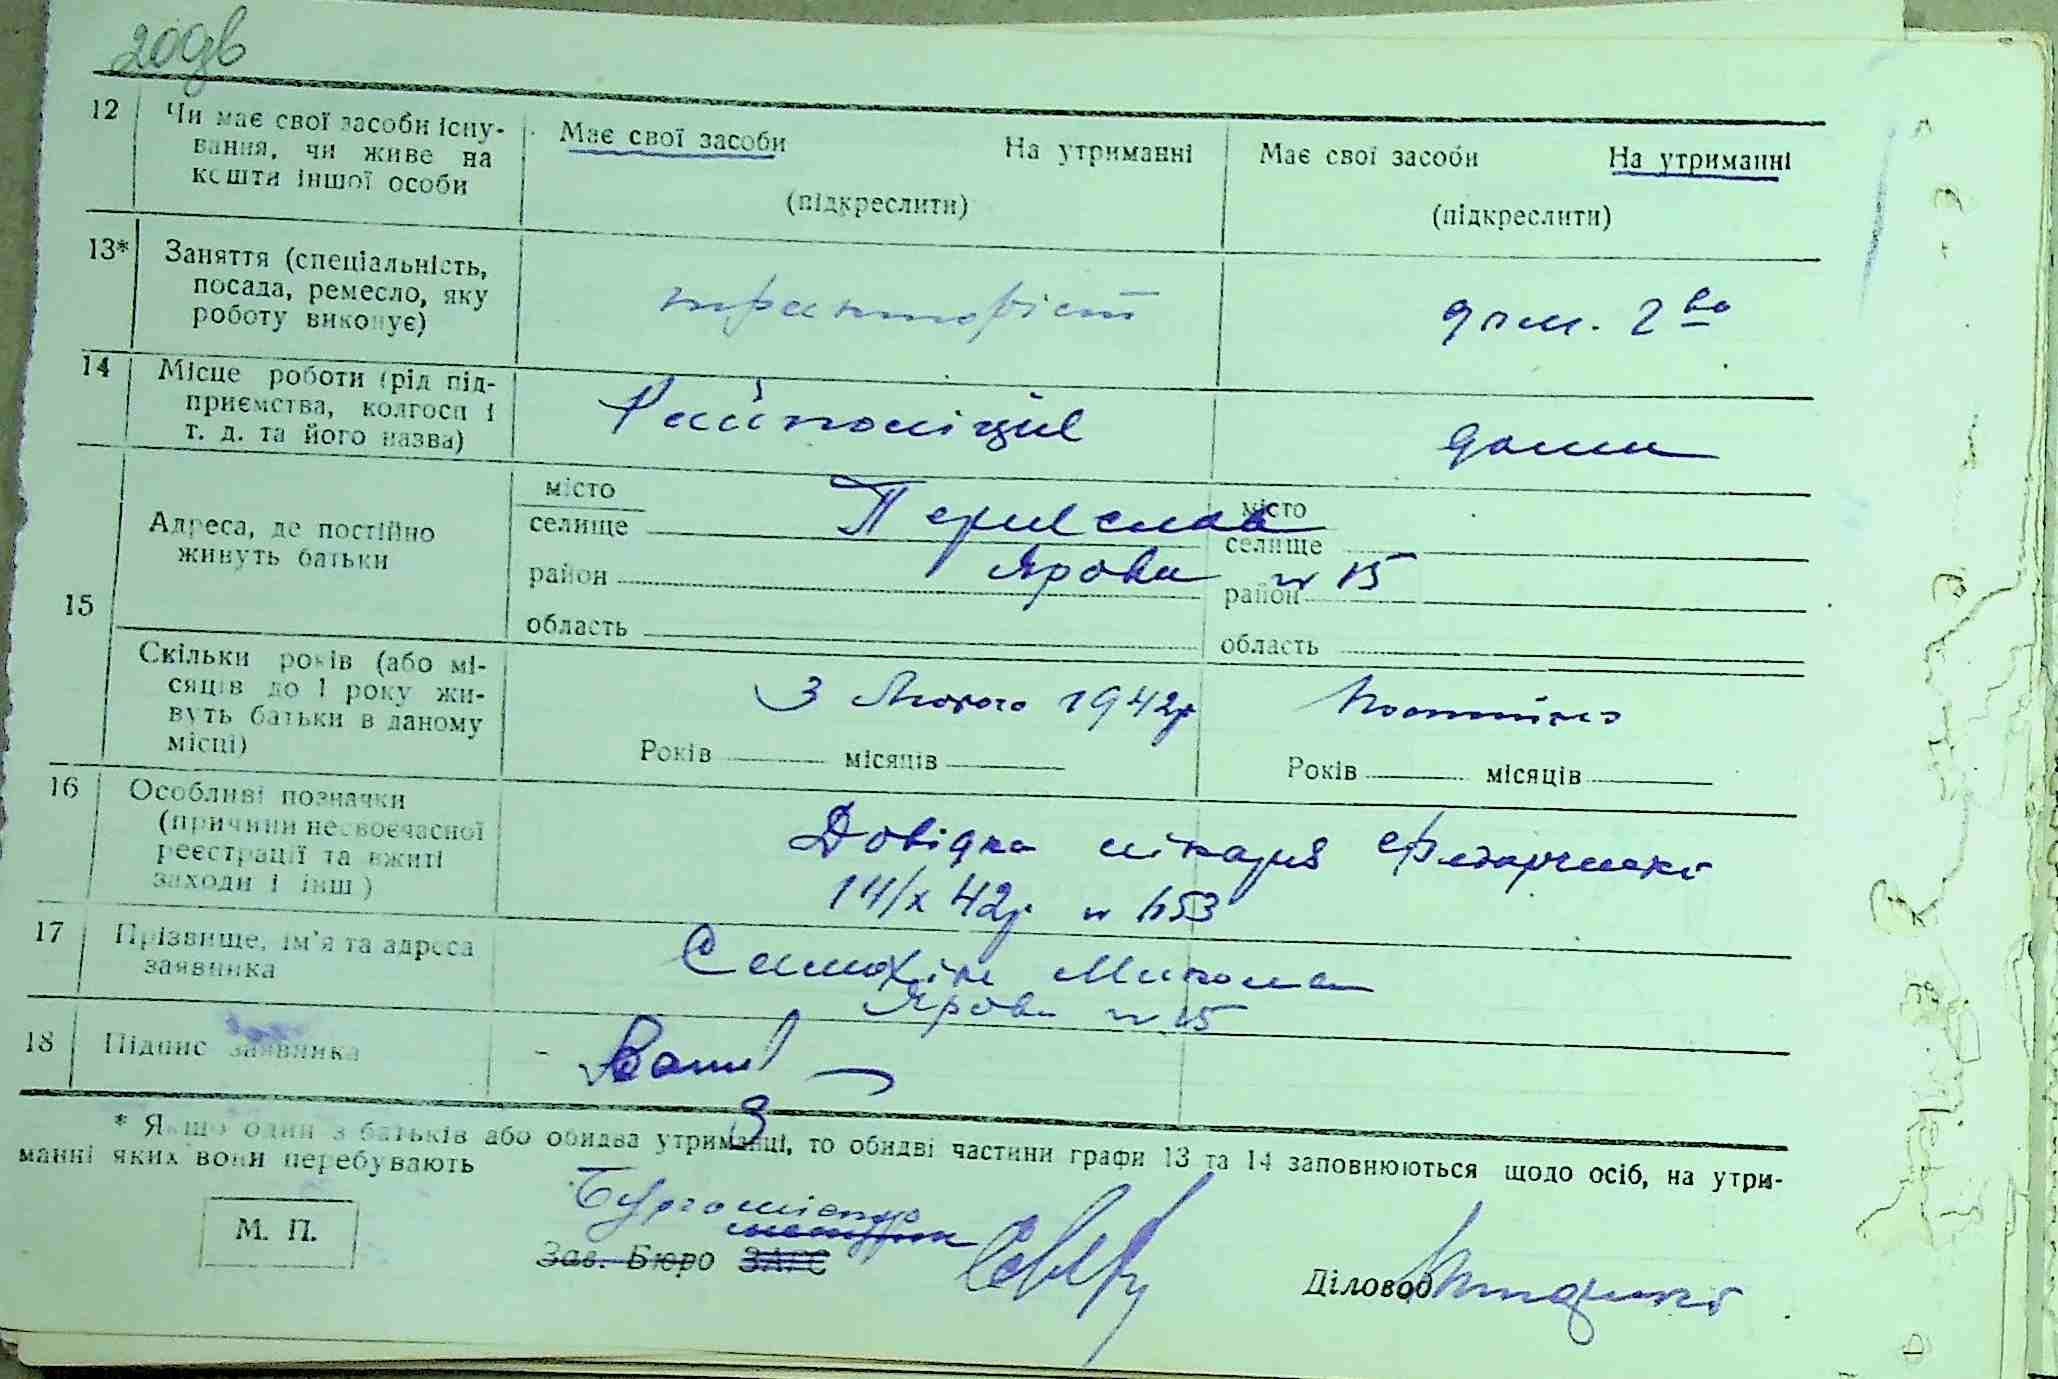 20дв
12 Чи має свої засоби існу- Має свої засоби На утриманні Має свої засоби На утриманні
вання, чи живе на
кошти іншої особи (підкреслити) (підкреслити)
13* Заняття (спеціальність,
посада, ремесло, яку
роботу виконує) дом. г-во
14 Місце роботи (рід під-
приємства, колгосп і
т. д. та його назва) Райполіціє дома
15 Адреса, де постійно
живуть батьки
місто місто
селище Переслав селище
район Ярова № 15 район
область область
Скільки років (або мі-
сяців до 1 року жи-
вуть батьки в даному
місці)
З Лютого 1942р Постійно
Років місяців Років місяців
16 Особливі позначки
(причини несвоєчасної
реєстрації та вжиті
заходи і інш)
Довідка лікаря
14/X 42р № 653
17 Прізвище, ім'я та адреса
заявника
Самохін Микола
Ярова № 15
18 Підпис заявника
* Якщо один з батьків або обидва утриманці, то обидві частини графи 13 та 14 заповнюються щодо осіб, на утри-
манні яких вони перебувають
М. П.
Бургомістр
Зав. Бюро ЗАГС
Діловод